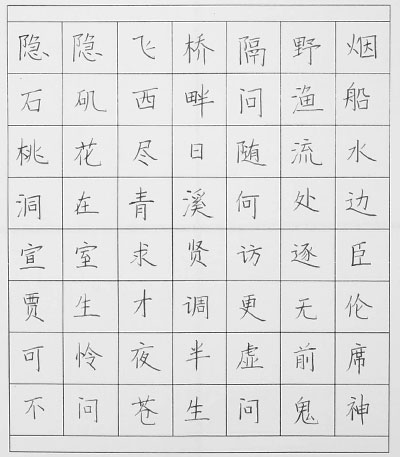 隐隐飞桥隔野烟
石矶西畔问渔船
桃花尽日随流水
洞在青溪何处边
宣室求贤访逐臣
贾生才调更无伦
可怜夜半虚前席
不问苍生问鬼神